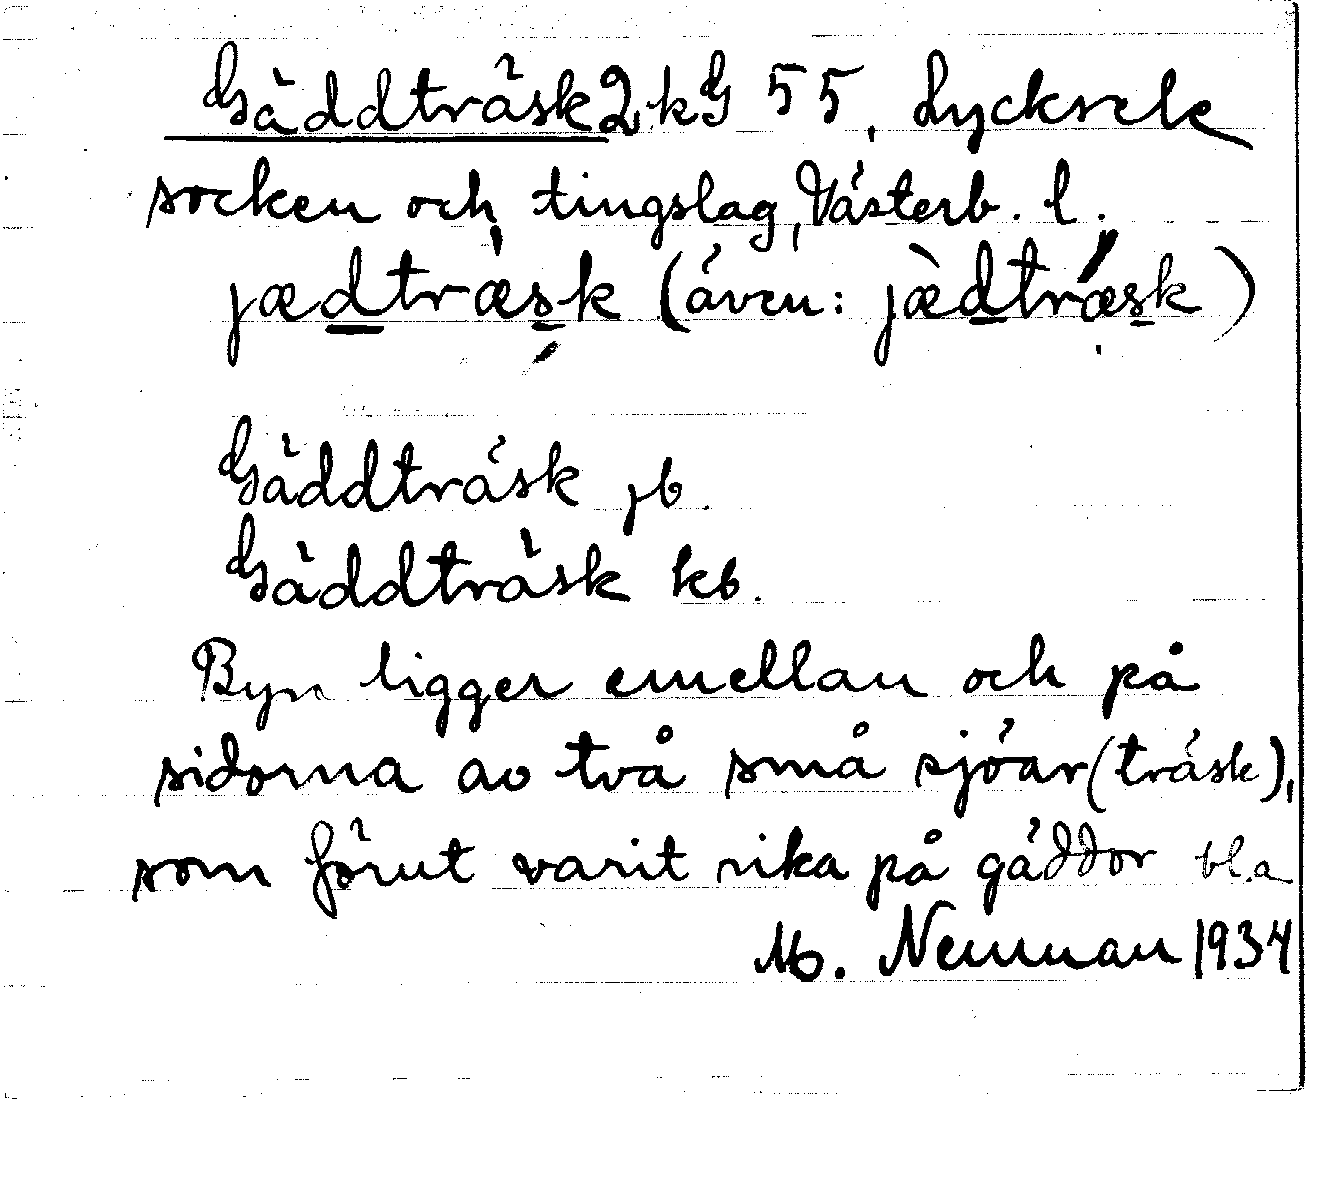 Gäddträsk 2 kG 55, Lycksele
socken och tingslag, Västerb. l.
jædtræsk (även: jæ̀dtræsk)
Gäddträsk jb.
Gäddträsk kb.
Byn ligger emellan och på
sidorna av två små sjöar (träsk),
som förut varit rika på gäddor bl.a
M. Nenman 1934